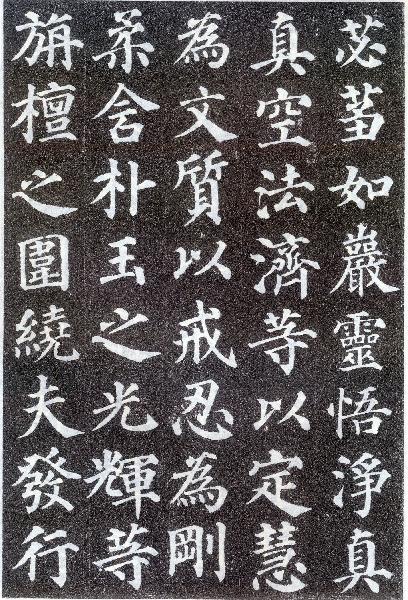 苾蒭如巖靈悟淨真
真空法濟等以定慧
為文質以戒忍為剛
柔含朴玉之光輝等
旃檀之圍繞夫發行